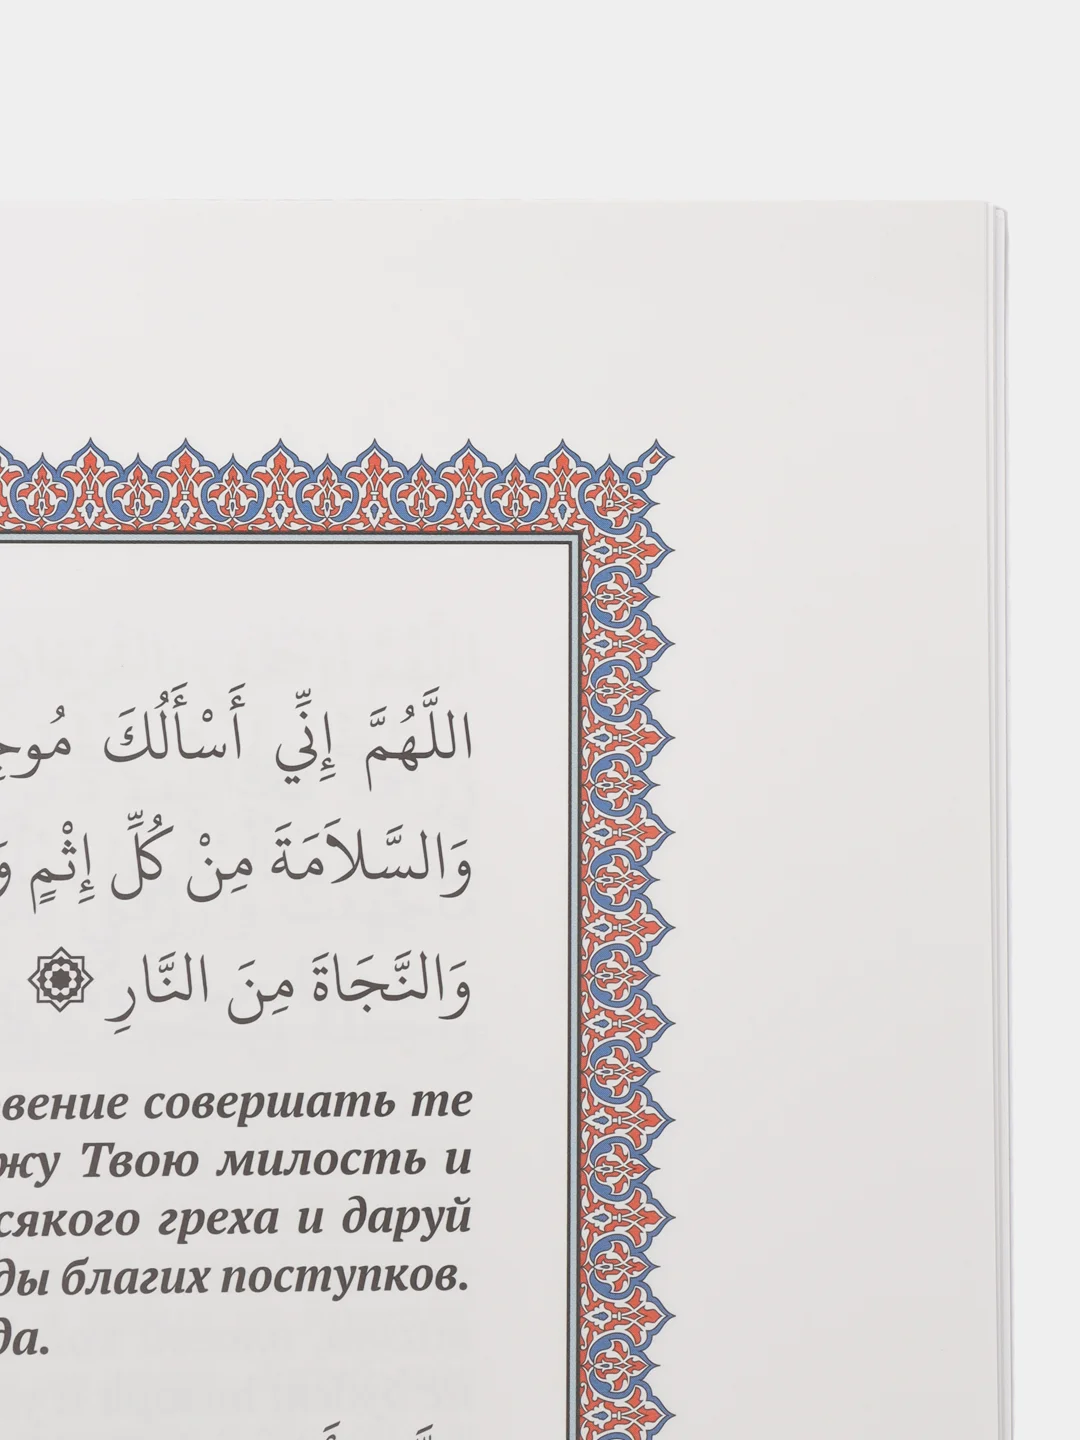 اللَّهُمَّ إِنِّي أَسْأَلُكَ
وَالسَّلاَمَةَ مِنْ كُلِّ إِثْمٍ
وَالنَّجَاةَ مِنَ النَّارِ
совершать те
Твою милость и
греха и даруй
благих поступков.